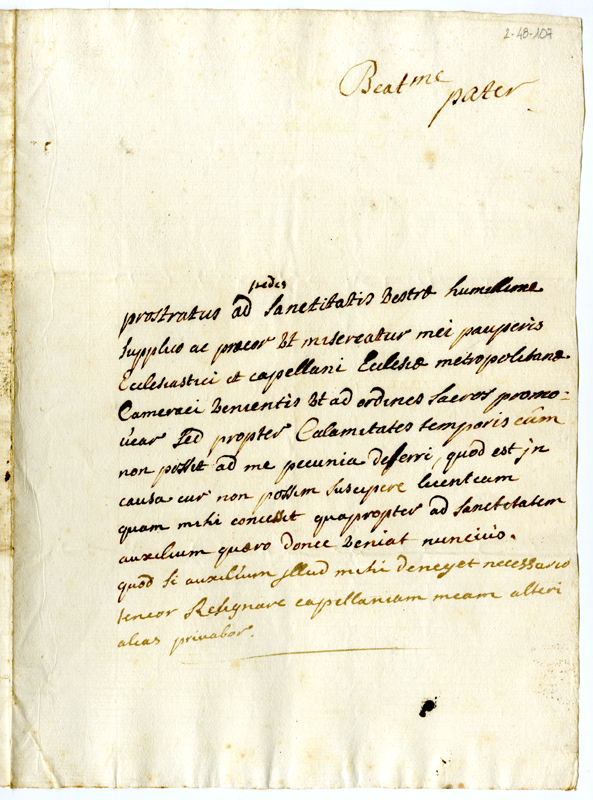 2-48-107
Beatme
pater
pedes
prostratus ad Sanctitatis Vestræ humillime
Supplico ac præcor Vt misereatur mei pauperis
Ecclesiastici et capellani Ecclesiæ metropolitanæ
Cameraci Venientis Vt ad ordines Sacros promo=
vear Sed propter Calamitates temporis cùm
non posset ad me pecunia deferri, quod est jn
causa cur non possim suscipere
quam mihi concesset quapropter ad Sanctitatem
auxilium quæro donec Veniat nuncius.
quod si auxilium jllud mihi deneget necessario
teneor Resignare capellaniam meam alteri
alias privabor.